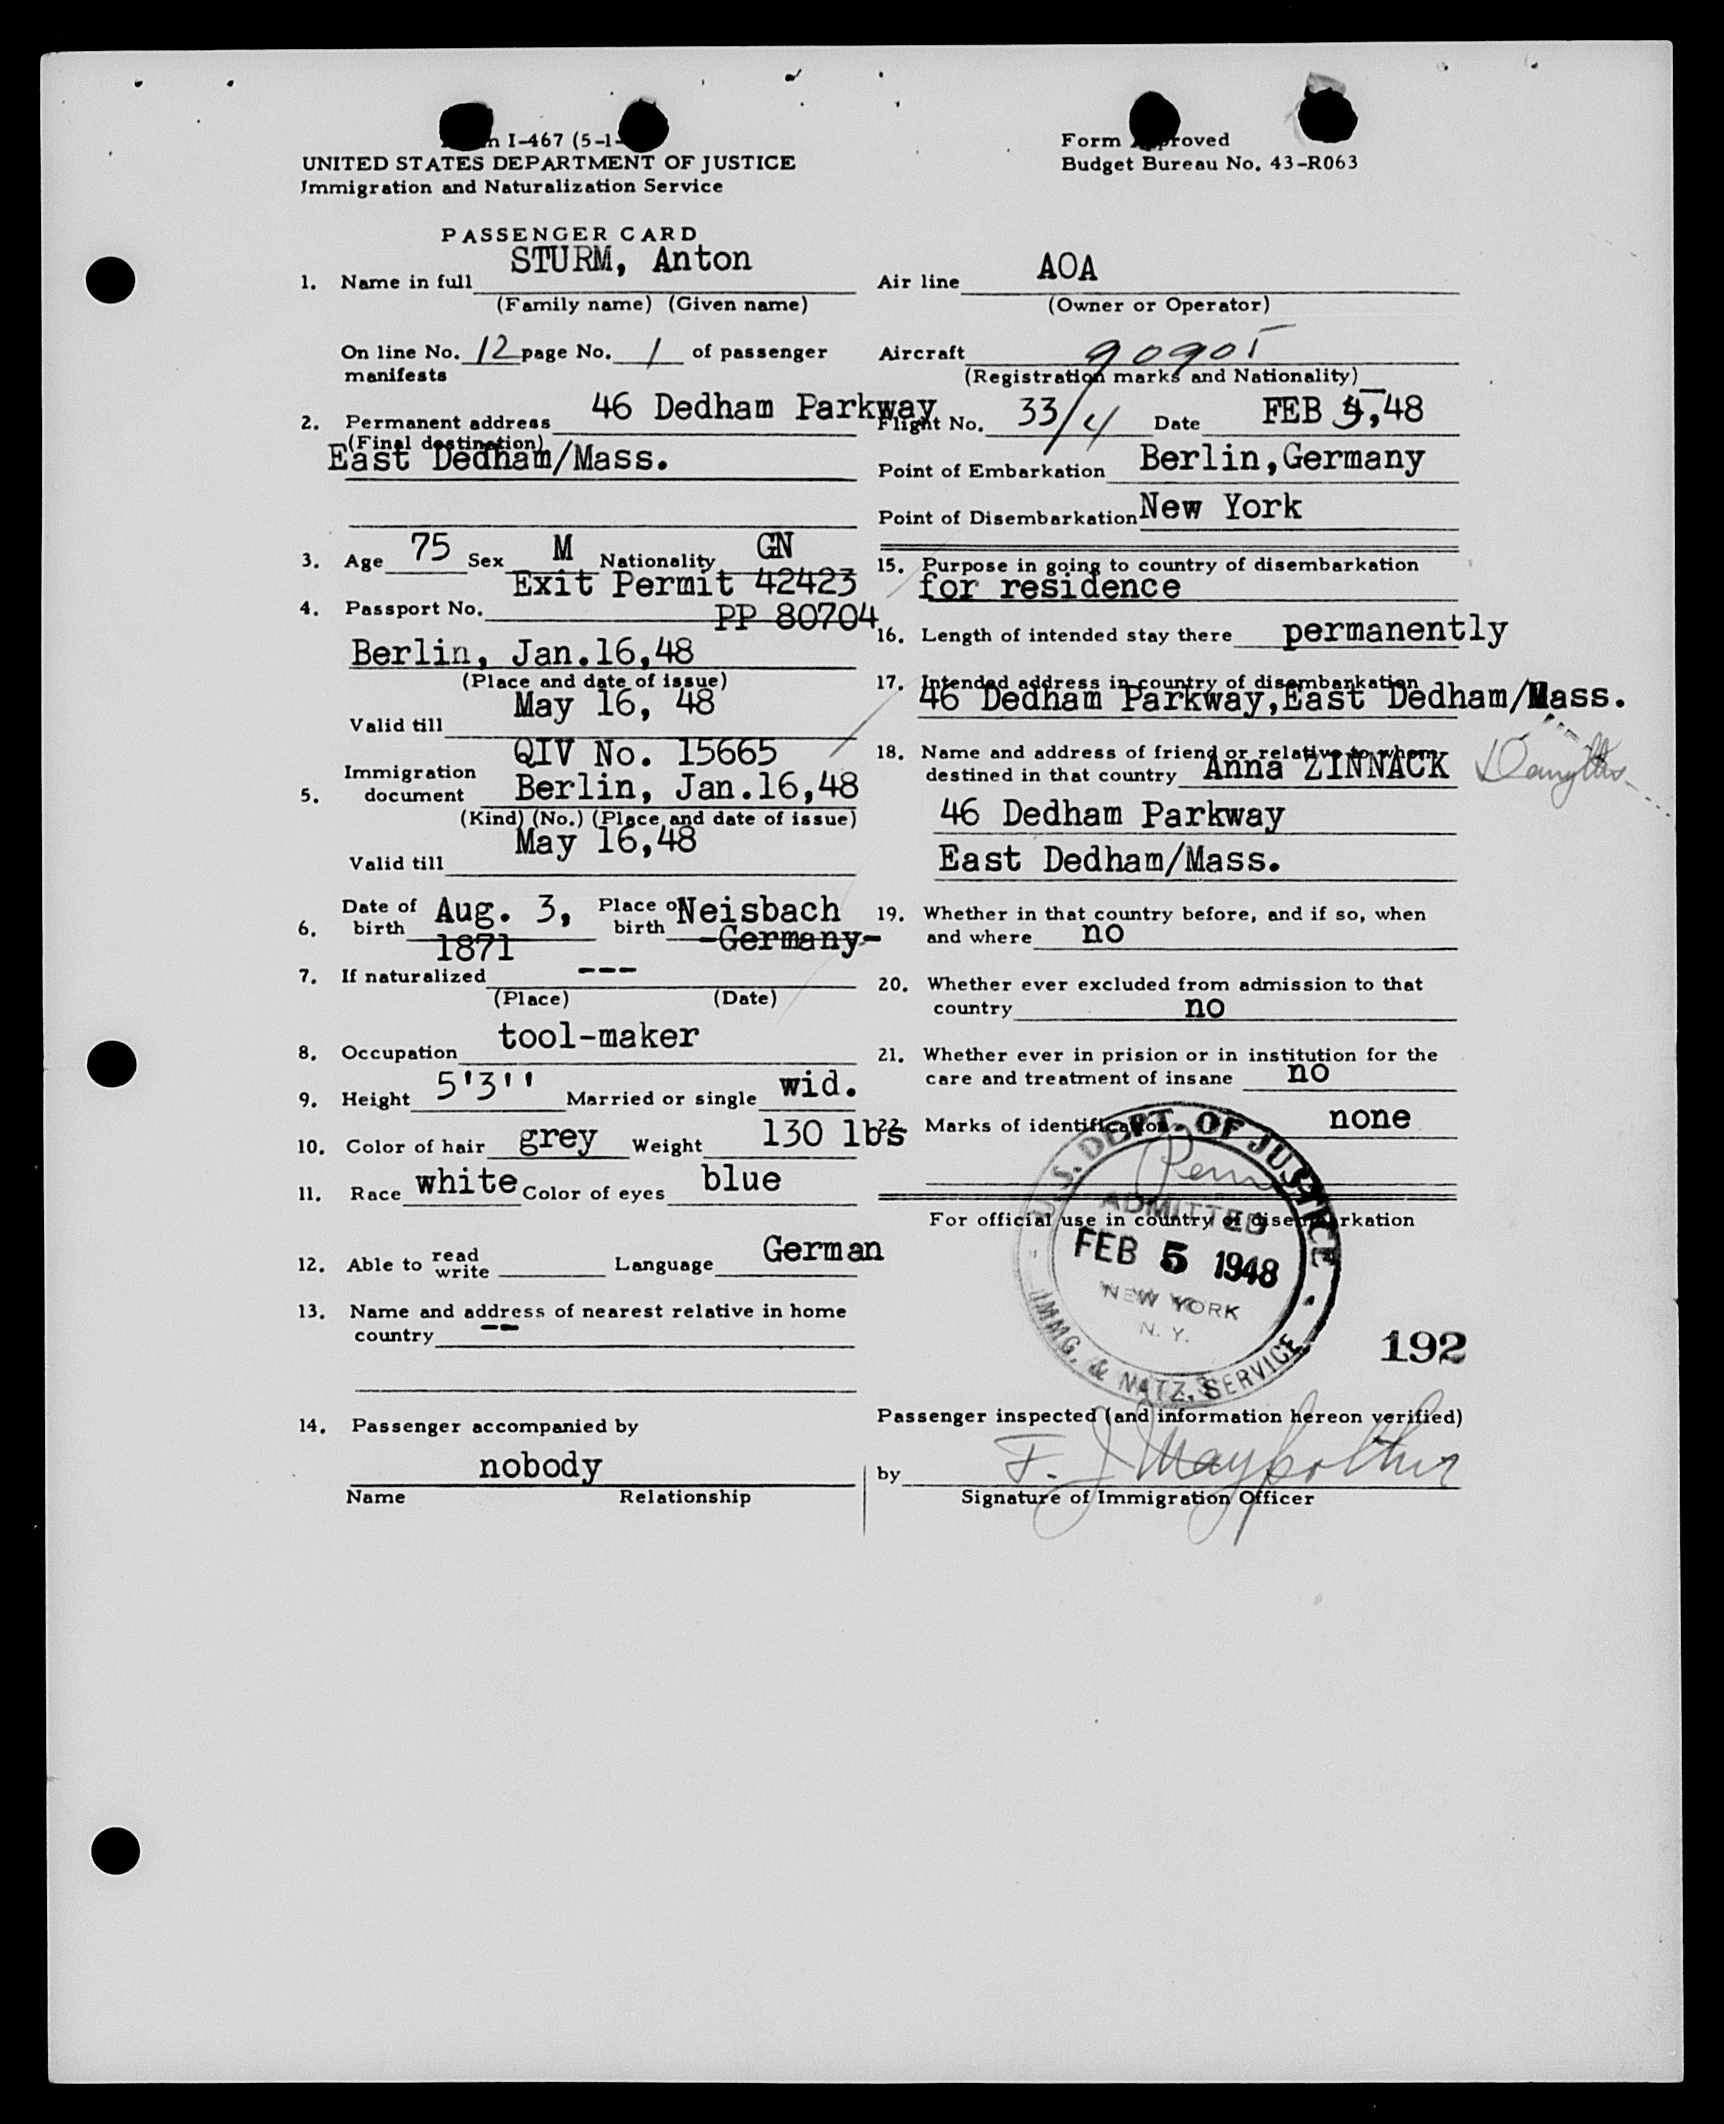 I-467 (5-1-
UNITED STATES DEPARTMENT OF JUSTICE
Immigration and Naturalization Service
Form Approved
Budget Bureau No. 43-R063
PASSENGER CARD
1. Name in full STURM, Anton
(Family name) (Given name)
On line No. 12 page No. 1 of passenger
manifests
2. Permanent address 46 Dedham Parkway
(Final destination)
East Dedham/Mass.
3. Age 75 Sex M Nationality GN
Exit Permit 42423
4. Passport No. PP 80704
Berlin, Jan.16,48
(Place and date of issue)
Valid till May 16, 48
QIV No. 15665
5. Immigration document Berlin, Jan.16,48
(Kind) (No.) (Place and date of issue)
Valid till May 16,48
6. Date of birth Aug. 3, 1871 Place of birth Neisbach
-Germany-
7. If naturalized ---
(Place) (Date)
8. Occupation tool-maker
9. Height 5'3'' Married or single wid.
10. Color of hair grey Weight 130 lbs
11. Race white Color of eyes blue
12. Able to read write Language German
13. Name and address of nearest relative in home
country --
14. Passenger accompanied by
nobody
Name Relationship
Air line AOA
(Owner or Operator)
Aircraft 90905
(Registration marks and Nationality)
Flight No. 33/4 Date FEB 5,48
Point of Embarkation Berlin,Germany
Point of Disembarkation New York
15. Purpose in going to country of disembarkation
for residence
16. Length of intended stay there permanently
17. Intended address in country of disembarkation
46 Dedham Parkway,East Dedham/Mass.
18. Name and address of friend or relative to whom
destined in that country Anna ZINNACK Daughter
46 Dedham Parkway
East Dedham/Mass.
19. Whether in that country before, and if so, when
and where no
20. Whether ever excluded from admission to that
country no
21. Whether ever in prision or in institution for the
care and treatment of insane no
22. Marks of identification none
For official use in country of disembarkation
U.S. DEPT. OF JUSTICE
Perm
ADMITTED
FEB 5 1948
NEW YORK
N. Y.
IMMG. & NATZ. SERVICE
192
Passenger inspected (and information hereon verified)
by F. J.
Signature of Immigration Officer